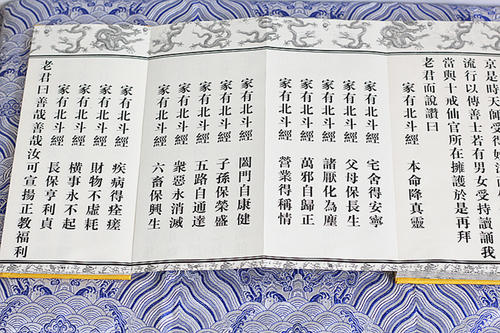 京是時天師受得妙法
流行以傳善士若有男女受持讀誦我
當與十戒仙官所在擁護於是再拜
老君而說讚曰
家有北斗經 本命降真靈
家有北斗經 宅舍得安寧
家有北斗經 父母保長生
家有北斗經 諸厭化為塵
家有北斗經 萬邪自歸正
家有北斗經 營業得稱情
家有北斗經 闔門自康健
家有北斗經 子孫保榮盛
家有北斗經 五路自通達
家有北斗經 眾惡永消滅
家有北斗經 六畜保興生
家有北斗經 疾病得痊瘥
家有北斗經 財物不虛耗
家有北斗經 橫事永不起
家有北斗經 長保亨利貞
老君曰善哉善哉汝可宣揚正教福利